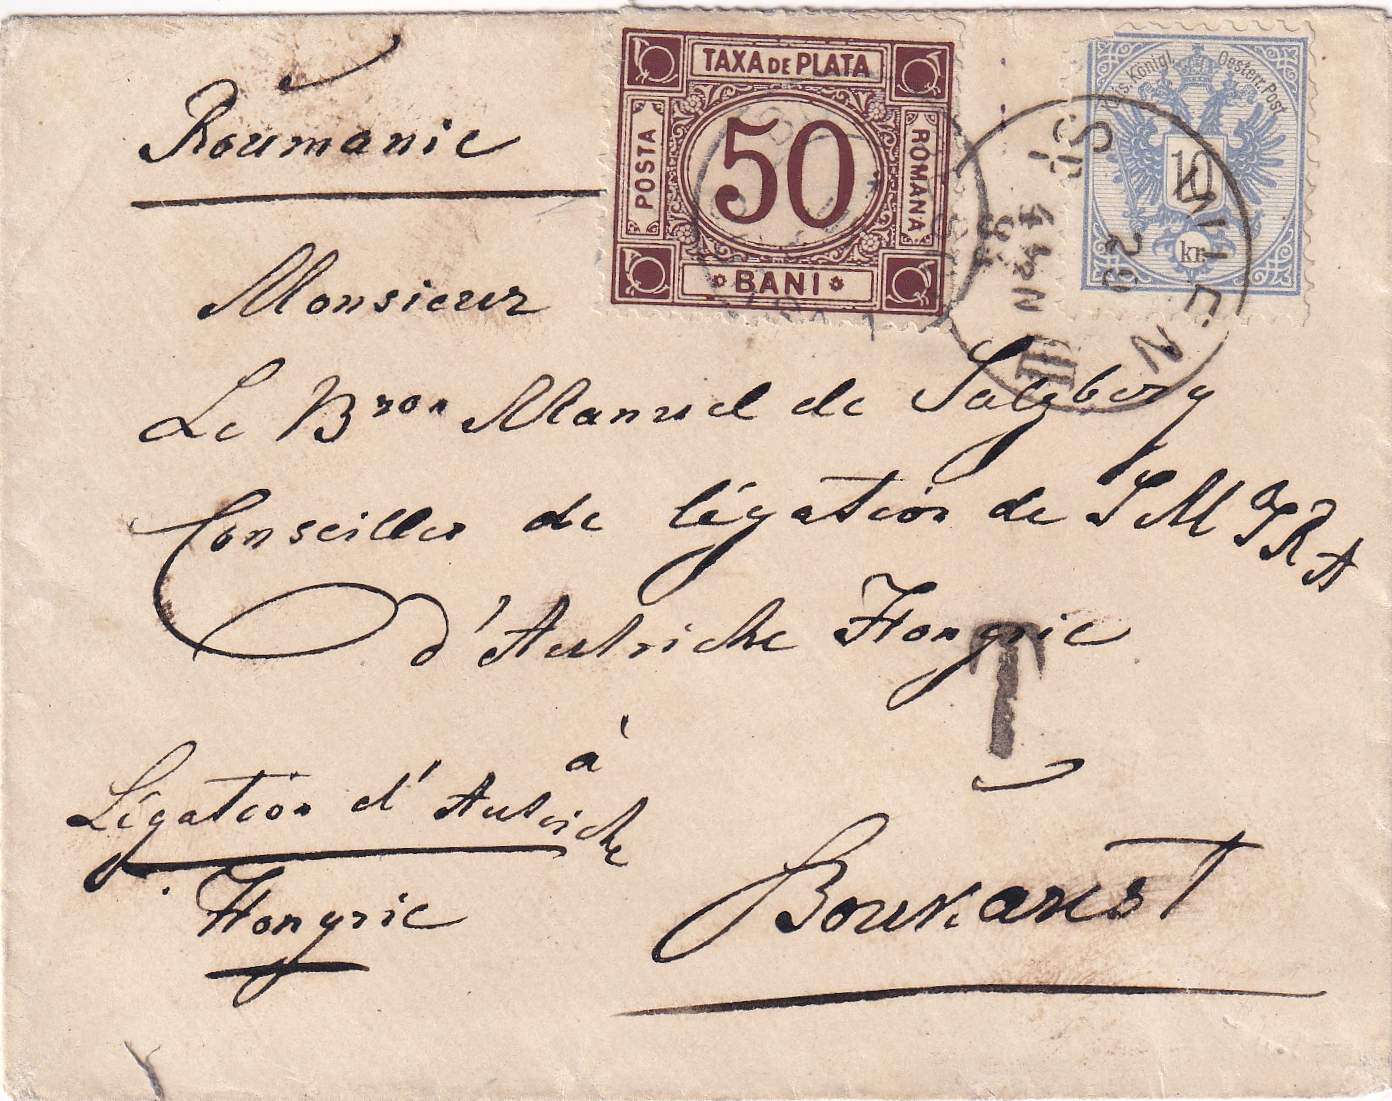 Roumanie
TAXA DE PLATA
POSTA
50
ROMANA
BANI
Oesterr. Post
10
kr
WIEN
III
Monsieur
Le Bron Manuel de Salzberg
Conseiller de légation de S M I R A
d'Autriche Hongrie
T
à
Légation d'Autriche
Hongrie
Boukarest